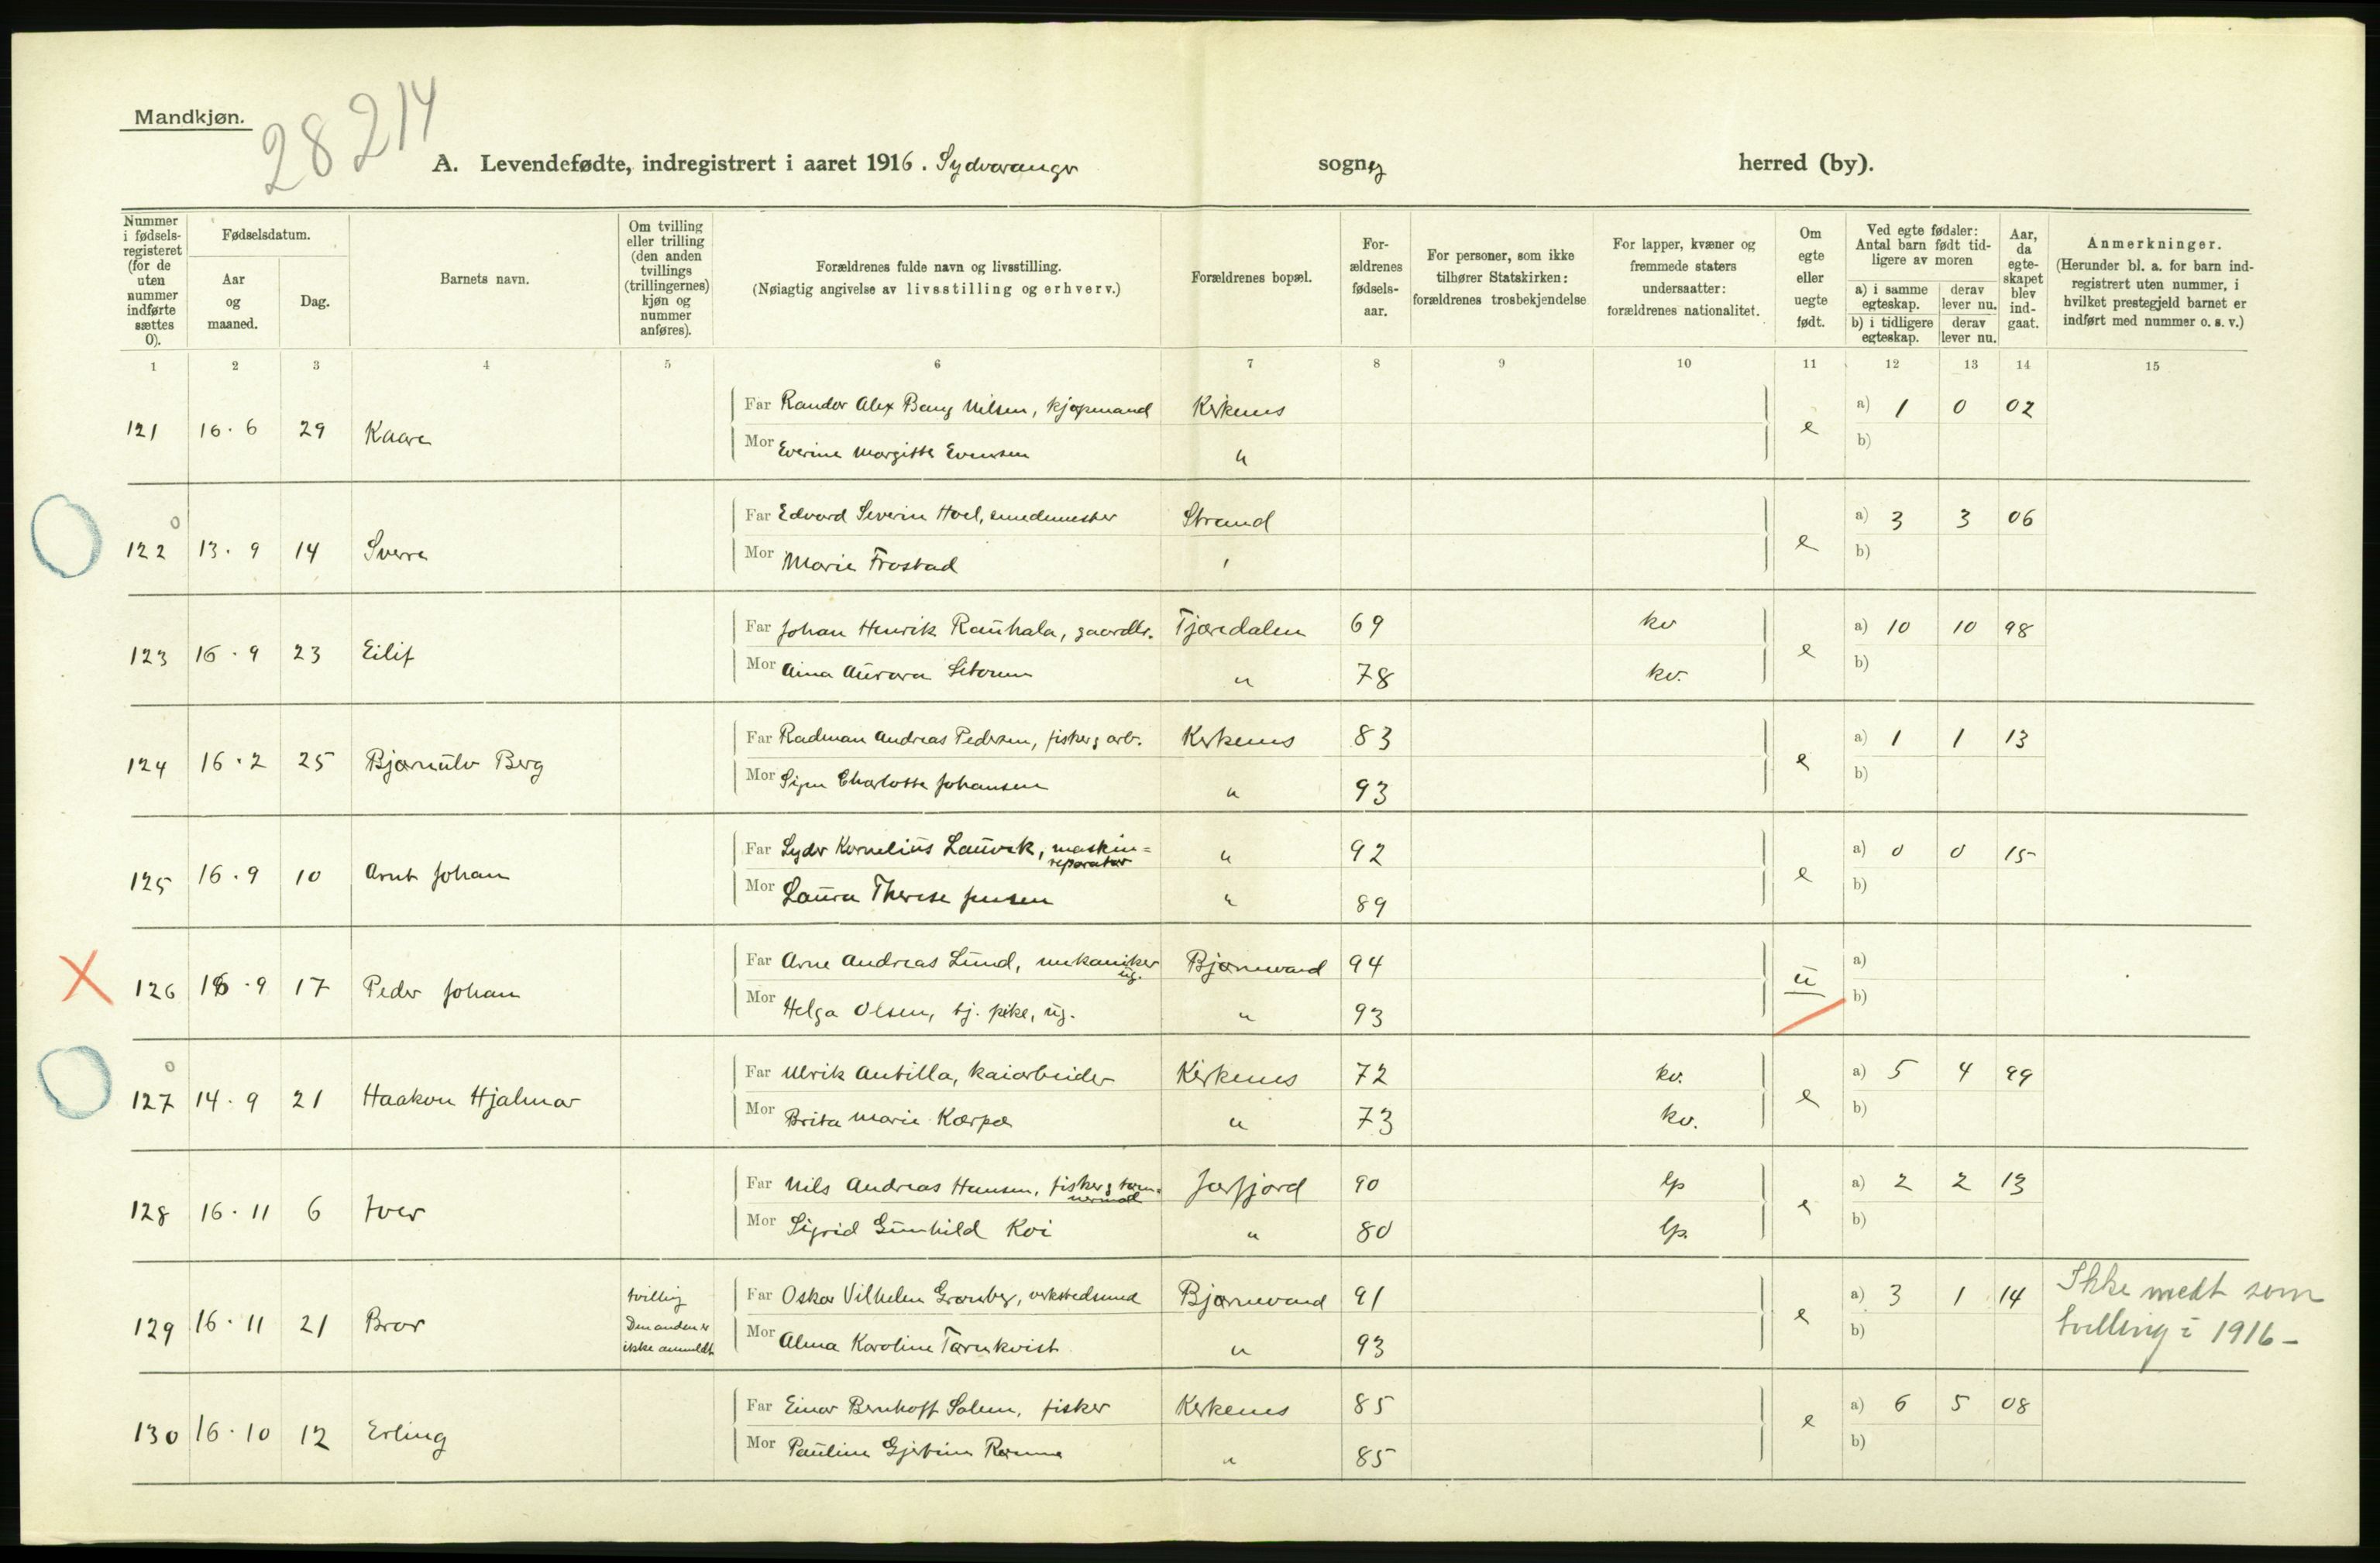 Mandkjøn.
28214
A. Levendefødte, indregistrert i aaret 1916. Sydvaranger sogn og herred (by).
Nummer i fødselsregisteret (for de uten nummer indførte sættes 0).
Fødselsdatum.
Aar og maaned.
Dag.
Barnets navn.
Om tvilling eller trilling (den anden tvillings (trillingernes) kjøn og nummer anføres).
Forældrenes fulde navn og livsstilling.
(Nøiagtig angivelse av livsstilling og erhverv.)
Forældrenes bopæl.
Forældrenes fødselsaar.
For personer, som ikke tilhører Statskirken: forældrenes trosbekjendelse
For lapper, kvæner og fremmede staters undersaatter: forældrenes nationalitet.
Om egte eller uegte født.
Ved egte fødsler: Antal barn født tidligere av moren
a) i samme egteskap. derav lever nu.
b) i tidligere egteskap. derav lever nu.
Aar, da egteskapet blev indgaat.
Anmerkninger.
(Herunder bl. a. for barn indregistrert uten nummer, i hvilket prestegjeld barnet er indført med nummer o. s. v.)
1 2 3 4 5 6 7 8 9 10 11 12 13 14 15
121 16·6 29 Kaare
Far Randor Alex Bang Nilsen, kjøpmand Kirkenes e a) 1 0 02
Mor Everine Margitte Evensen " b)
0
122 13·9 14 Sverre
Far Edvard Severin Hoel, smedmester Strand e a) 3 3 06
Mor Marie Frostad " b)
123 16·9 23 Eilif
Far Johan Henrik Rauhala, gaardbr. Tjæredalen 69 kv e a) 10 10 98
Mor Aina Aurora " 78 kv. b)
124 16·2 25 Bjørnulv Berg
Far Radman Andreas Pedersen, fisker, arb. Kirkenes 83 e a) 1 1 13
Mor Signe Charlotte Johansen " 93 b)
125 16·9 10 Arnt Johan
Far Syder Kornelius Laurek, maskin=
reparatør " 92 e a) 0 0 15
Mor Laura Therese Jensen " 89 b)
126 16·9 17 Peder Johan
Far Arne Andreas Lund, mekaniker
ug. Bjørnevand 94 u a)
Mor Helga Olsen, tj. pike, ug. " 93 b)
0
127 14·9 21 Haakon Hjalmar
Far Ulrik Antilla, kaiarbeider Kirkenes 72 kv. e a) 5 4 99
Mor Brita Marie Karpa " 73 kv. b)
128 16·11 6 Iver
Far Nils Andreas Hansen, fisker, tøm=
mermd Jarfjord 90 lp e a) 2 2 13
Mor Sigrid Gunhild Koi " 80 lp. b)
129 16·11 21 Bror
tvilling
Den anden er
ikke anmeldt
Far Oskar Vilhelm Granberg, verkstedsmd Bjørnevand 91 e a) 3 1 14
Mor Alma Karoline Tørnkvist " 93 b)
Ikke medt som
tvilling i 1916 –
130 16·10 12 Erling
Far Einar Bernhoff Salem, fisker Kirkenes 85 e a) 6 5 08
Mor Pauline Gjertine " 85 b)